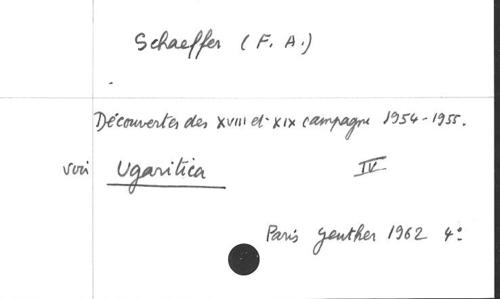 Schaeffer (F. A.)
Découvertes des XVIII et XIX campagne 1954-1955.
voir Ugaritica IV
Paris Geuther 1962 4º